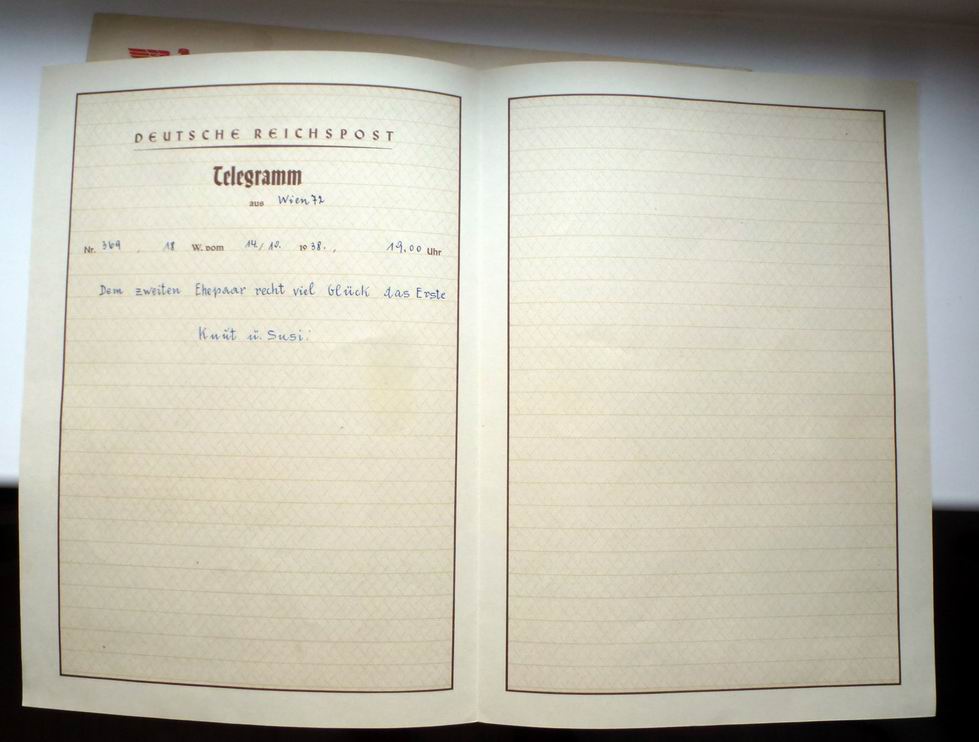 DEUTSCHE REICHSPOST
Telegramm
aus Wien 72
Nr. 369 , 18 W. vom 14./10. 1938. , 19.00 Uhr
Dem zweiten Ehepaar recht viel Glück das Erste
Knut u. Susi.